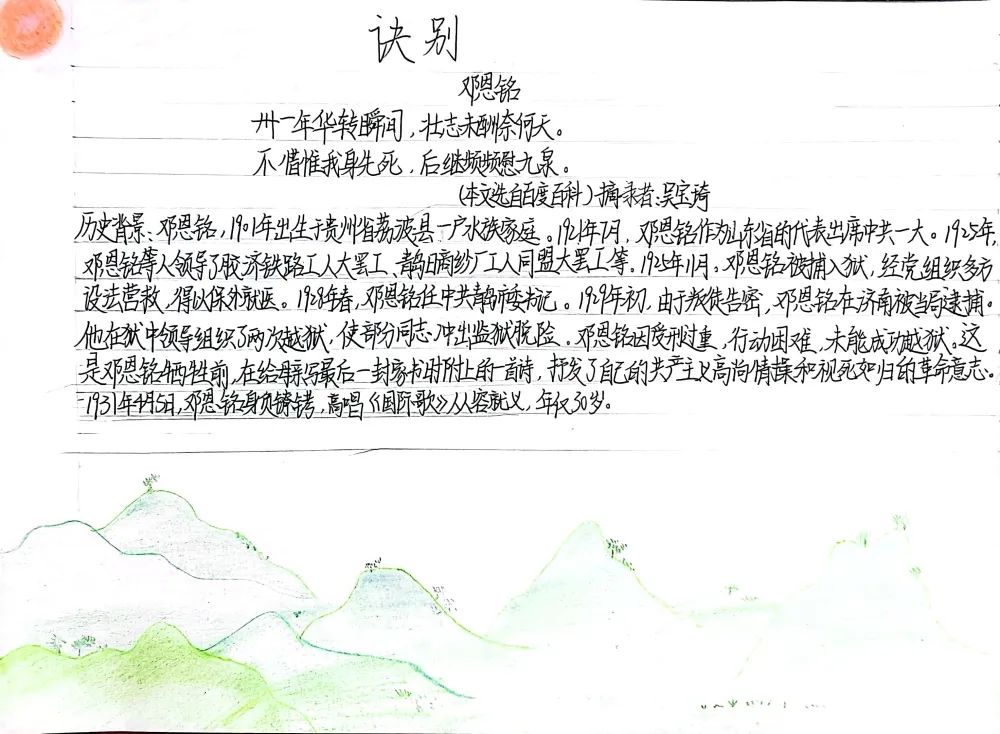 诀别
邓恩铭
卅一年华转瞬间，壮志未酬奈何天。
不惜惟我身先死，后继频频慰九泉。
（本文选自百度百科）摘录者：吴宝琦
历史背景：邓恩铭，1901年出生于贵州省荔波县一户水族家庭。1921年7月，邓恩铭作为山东省的代表出席中共一大。1925年，
邓恩铭等人领导了胶济铁路工人大罢工、青岛日商纱厂工人同盟大罢工等。1925年11月，邓恩铭被捕入狱，经党组织多方
设法营救，得以保外就医。1928年春，邓恩铭任中共青岛市委书记。1929年初，由于叛徒告密，邓恩铭在济南被当局逮捕。
他在狱中领导组织了两次越狱，使部分同志冲出监狱脱险。邓恩铭因受刑过重，行动困难，未能成功越狱。这
是邓恩铭牺牲前，在给母亲写最后一封家书时附上的一首诗，抒发了自己的共产主义高尚情操和视死如归的革命意志。
1931年4月5日，邓恩铭身负镣铐，高唱《国际歌》从容就义，年仅30岁。